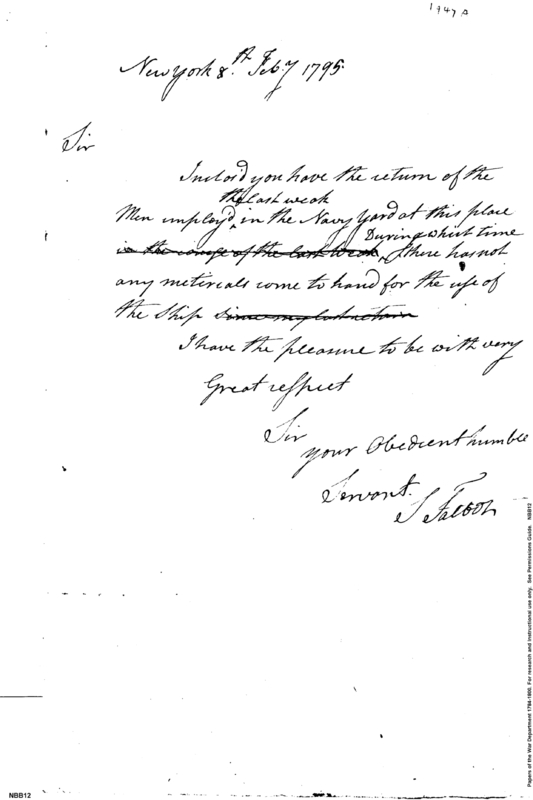 1747 A
New York 8th Feby 1795
Sir
Inclosd you have the return of the
the last weak
Men employd, in the Navy Yard at this place
During which time
in the course of the last Week, there has not
any meterials come to hand for the use of
the Ship since my last return
I have the pleasure to be with very
Great respect
Sir
your Obedient humble
Servant.
S Talbot
Papers of the War Department 1784-1800. For research and instructional use only. See Permissions Guide. NBB12
NBB12